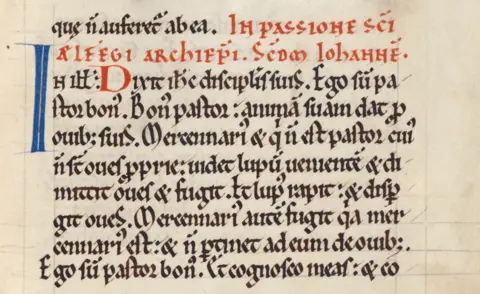 que n̄ auferet᷑ ab ea. IN PASSIONE SC̄I
ÆLFEGI ARCHIEP̄I. SC̄DM IOHANNĒ.
IN ill̄: Dixit ih̄c disciplis̄ suis. Ego sū pa
stor bon᷒. Bon᷒ pastor: animā suam dat ꝓ
ouib; suis. Mercennari᷒ & q̄ n̄ est pastor cui᷒
n̄ st̄ oues ꝓprie: uidet lupū uenientē & di
mittit oues & fugit. Et lup᷒ rapit: & disp̄
git oues. Mercennari᷒ autē fugit q̄a mer
cennari᷒ est: & n̄ ꝑtinet ad eum de ouib;.
Ego sū pastor bon᷒. Et cognosco meas: & co